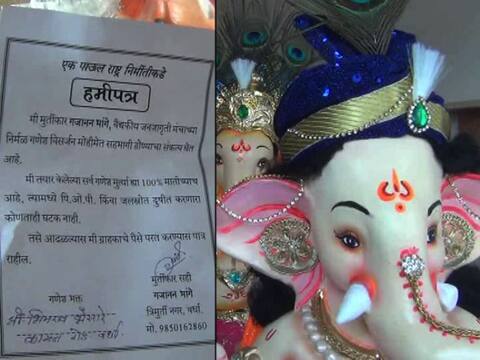 एक पाऊल राष्ट्र निर्मितीकडे
हमीपत्र
मी मुर्तीकार गजानन भांगे, वैश्वकीय जनजागृती मंचाच्या
निर्मळ गणेश विसर्जन मोहीमेत सहभागी होण्याचा संकल्प घेत
आहे.
मी तयार केलेल्या सर्व गणेश मुर्त्या ह्या 100% मातीच्याच
आहे, त्यामध्ये पि.ओ.पी. किंवा जलस्रोत दुषीत करणारा
कोणताही घटक नाही.
तसे आढळल्यास मी ग्राहकाचे पैसे परत करण्यास पात्र
राहील.
मुर्तीकार सही
गणेश भक्त
गजानन भांगे
त्रिमुर्ती नगर, वर्धा.
मो. 9850162860
श्री
वर्धा